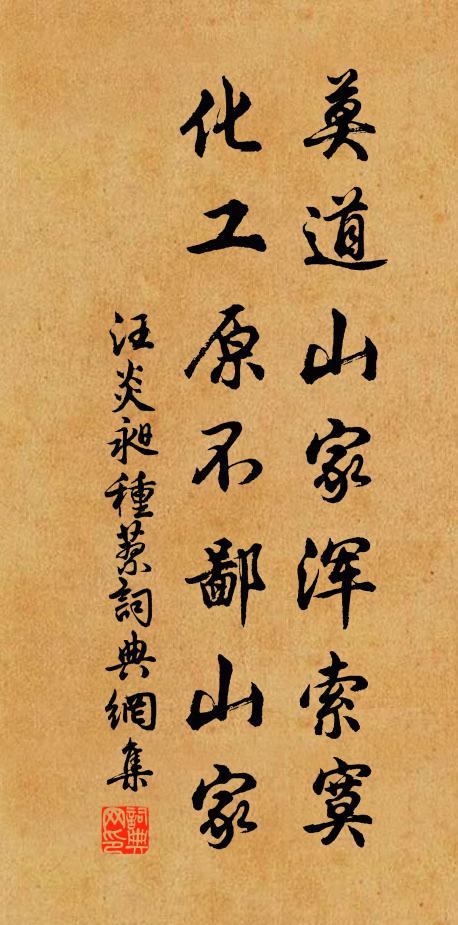 莫道山家浑索寞
化工原不鄙山家
汪炎昶種詞典網集
詞典
网印